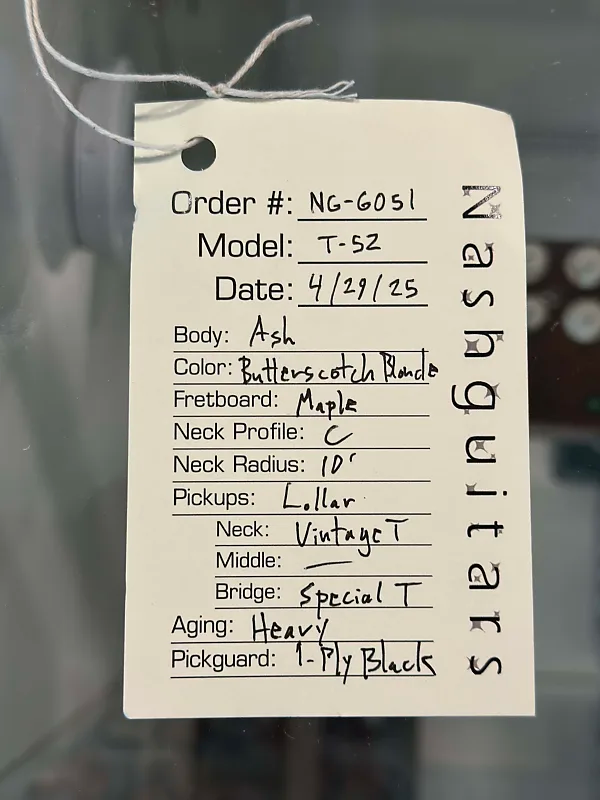 Order #: NG-6051
Model: T-52
Date: 4/29/25
Body: Ash
Color: Butterscotch Blonde
Fretboard: Maple
Neck Profile: C
Neck Radius: 10"
Pickups: Lollar
Neck: Vintage T
Middle: —
Bridge: Special T
Aging: Heavy
Pickguard: 1-Ply Black
Nashguitars